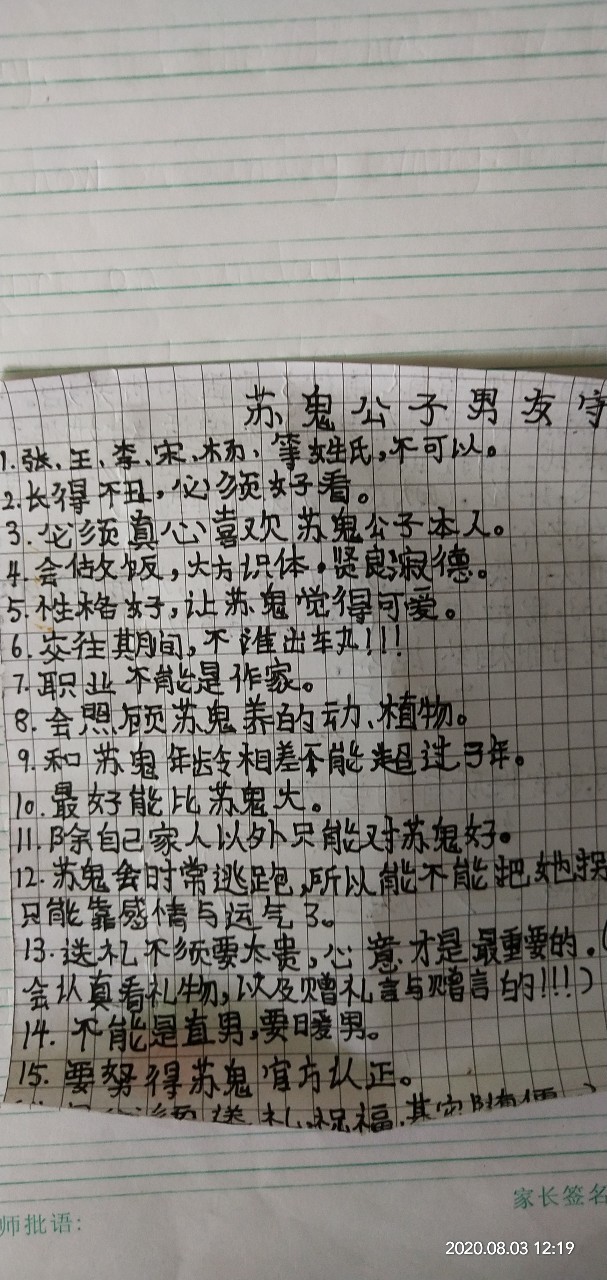 苏鬼公子男友守
1.张、王、李、宋、杨、等姓氏,不可以。
2.长得不丑,必须好看。
3.必须真心喜欢苏鬼公子本人。
4.会做饭,大方识体,贤良淑德。
5.性格好,让苏鬼觉得可爱。
6.交往其期间,不准出车丸!!!
7.职业不能是作家。
8.会照顾苏鬼养的动、植物。
9.和苏鬼年龄相差不能超过3年。
10.最好能比苏鬼大。
11.除自己家人以外只能对苏鬼好。
12.苏鬼会时常逃跑,所以能不能把她拐
只能靠感情与运气了。
13.送礼不须要太贵,心意才是最重要的.(
会认真看礼物,以及赠礼言与赠言的!!!)
14.不能是直男,要暖男。
15.要努得苏鬼官方认正。
送礼,祝福,其实
家长签名
师批语:
2020.08.03 12:19